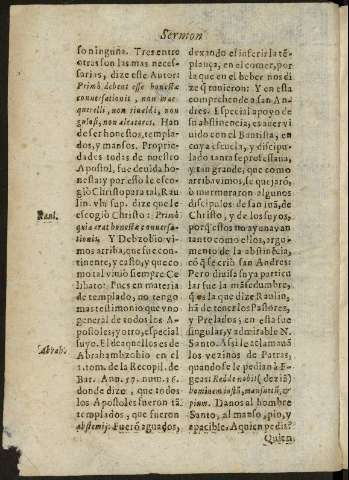 Sermon
so ninguña. Tres entre
otras son las mas neces-
sarias, dize este Autor:
Primò debent esse honestæ
conuersationis, non
querelli, non rixaldi, non
gulosi, non aleatores. Han
de ser honestos, templa-
dos, y mansos. Proprie-
dades todas de nuestro
Apostol, fue de vida ho-
nesta: y por esso le esco-
giò Christo para tal, Rau
lin. vbi sup. dize que le
Raul.
escogiò Christo: Primò
quia erat honestæ conuersa-
tionis, Y Debzobio vi-
mos arriba, que fue con-
tinente, y casto, y que co
mo tal viuiò siempre Ce
libato: Pues en materia
de templado, no tengo
mas testimonio que vno
general de todos los A-
postoles; y otro, especial
suyo. El de aquellos es de
Abrah.
Abrahambzobio en el
1. tom. de la Recopil. de
Bar. Ann. 57. num. 16.
donde dize, que todos
los Apostoles fueron tã
templados, que fueron
abstemij: Fuerõ aguados,
dexando el inferir la tẽ-
plança, en el comer, por
la que en el beber nos di
ze q̃ tuuieron: Y en esta
comprehende a san An-
dres. Especial apoyo de
su abstinencia, es auer vi
uido con el Bautista, en
cuya escuela, y discipu-
lado tanta se professaua,
y tan grande, que como
arriba vimos, le quejarõ,
ò mermeraron algunos
discipulos de san iuã, de
Christo, y de los suyos,
porq̃ estos no ayunauan
tanto como ellos, argu-
mento de la abstinẽcia,
cõ q̃ se criò san Andres:
Pero diuisa suya particu
lar fue la mãsedumbre,
q̃ es la que dize Raulin,
hã de tener los Pastores,
y Prelados; en esta fue
singular, y admirable N.
Santo. Assi le aclamauã
los vezinos de Patras,
quando se le pedian à E-
geas: Redde nobis (dezíã)
hominem iustũ, mansuetũ, &
pium. Danos al hombre
Santo, al manso, pio, y
apacible. A quien pedis?
Quien,